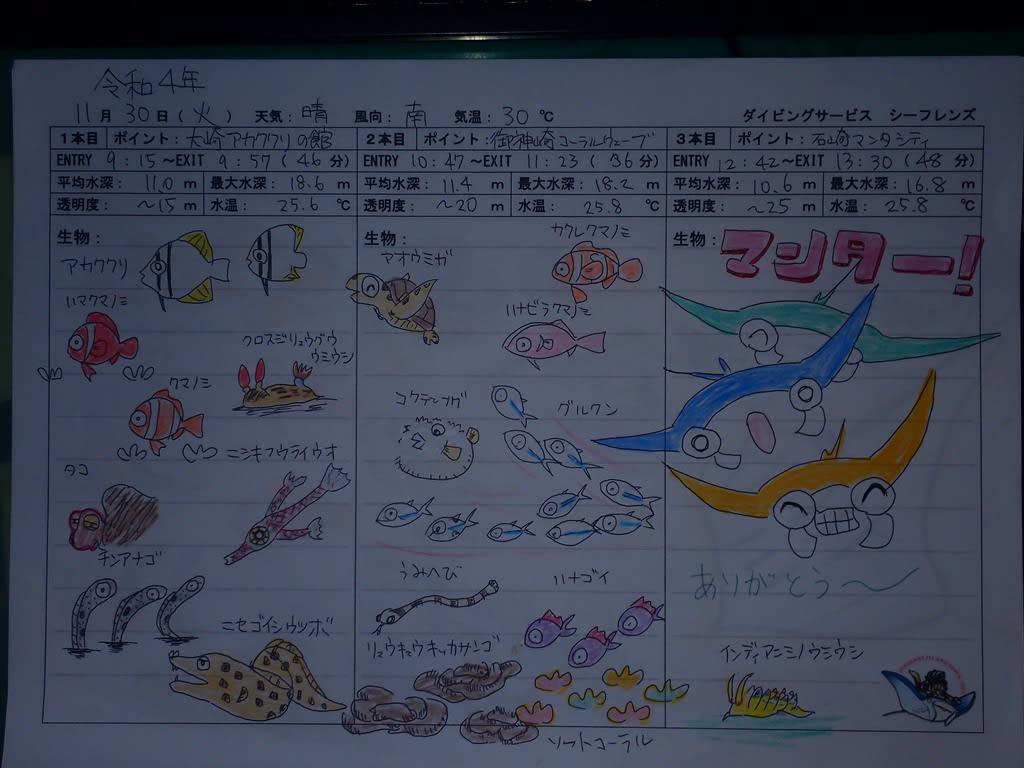 令和4年
11月30日(火) 天気:晴 風向:南 気温:30℃ ダイビングサービス シーフレンズ
1本目 ポイント:大崎アカククリの館
ENTRY 9:15～EXIT 9:57(46分)
平均水深: 11.0 m 最大水深: 18.6 m
透明度: ～15 m 水温: 25.6 ℃
生物:
アカククリ
ハマクマノミ
クロスジリュウグウ
ウミウシ
クマノミ
ニシキフウライウオ
タコ
チンアナゴ
ニセゴイシウツボ
2本目 ポイント:御神崎コーラルウェーブ
ENTRY 10:47～EXIT 11:23(36分)
平均水深: 11.4 m 最大水深: 18.2 m
透明度: ～20 m 水温: 25.8 ℃
生物:
カクレクマノミ
アオウミガメ
ハナビラクマノミ
コクテンフグ
グルクン
うみへび
ハナゴイ
リュウキュウキッカサンゴ
ソフトコーラル
3本目 ポイント:石崎マンタシティ
ENTRY 12:42～EXIT 13:30(48分)
平均水深: 10.6 m 最大水深: 16.8 m
透明度: ～25 m 水温: 25.8 ℃
生物:
マンター!
ありがとう～
インディアンミノウミウシ